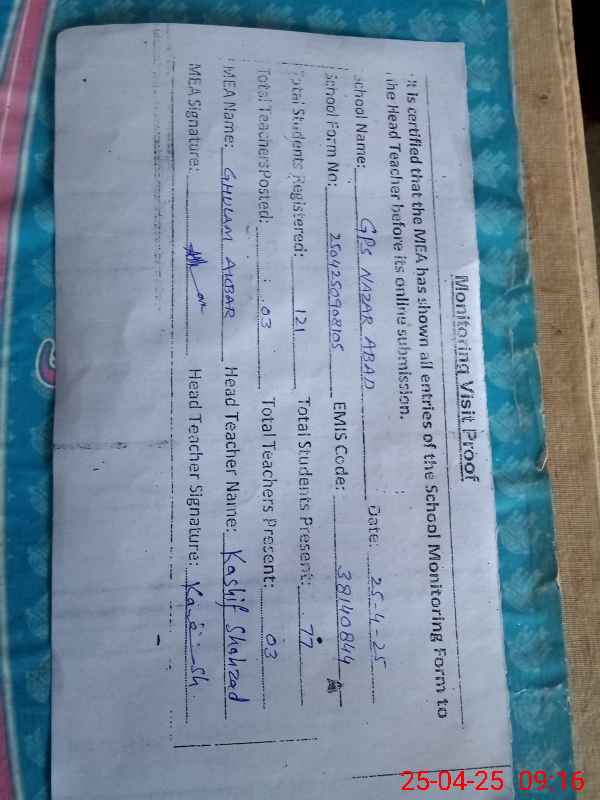 Monitoring Visit Proof
It is certified that the MEA has shown all entries of the School Monitoring Form to
the Head Teacher before its online submission.
School Name: GPS NAZAR ABAD Date: 25-4-25
School Form No: 2504250908105 EMIS Code: 38140844
Total Students Registered: 121 Total Students Present: 77
Total Teachers Posted: 03 Total Teachers Present: 03
MEA Name: GHULAM AKBAR Head Teacher Name: Kashif Shahzad
MEA Signature: Head Teacher Signature:
25-04-25 09:16